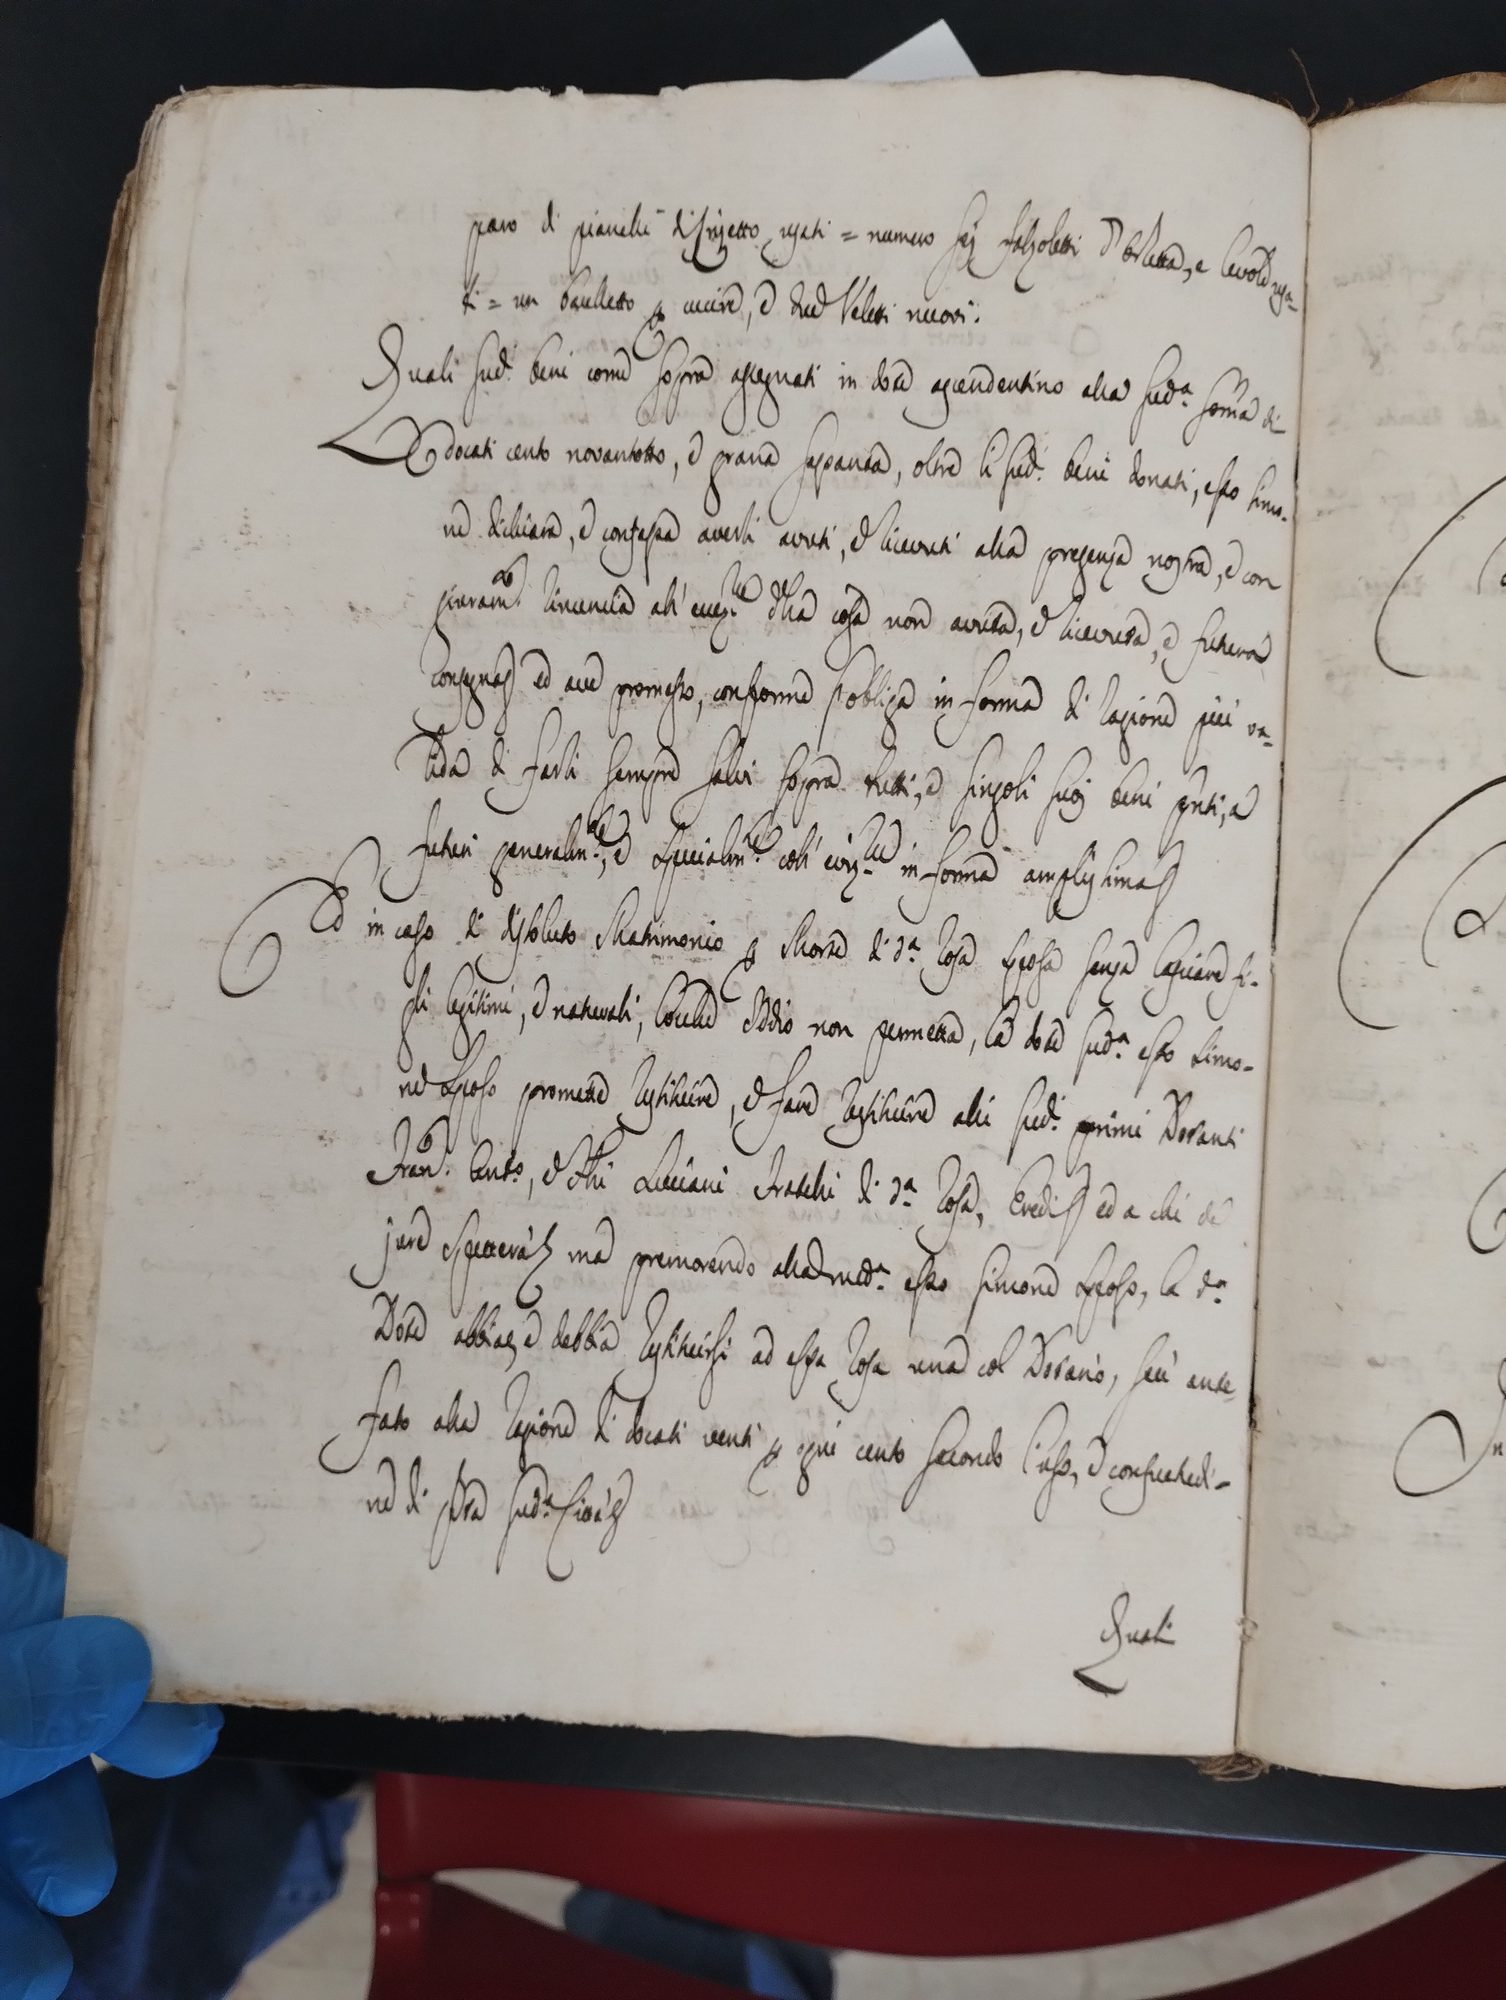 paro di pianelle usati = numero sej falzoletti d'orletta, e
ti = un bauletto p cucire, e due Veletti nuovi.
Quali sud.i beni come sopra assegnati in dote ascendentino alla sud.a somma di
docati cento novantotto, e grana sessanta, oltre li sud.i beni donati, esso Simo-
ne dichiara, e confessa averli avuti, e ricevuti alla presenza nostra, e con
giuram.to rinuncia all' ecez.ne della cosa non avuta, e ricevuta, e futura
consegna ed ave promesso, conforme s'obliga in forma di ragione più va-
lida di farli sempre salvi sopra tutti, e singoli suoj beni pnti, e
futuri generalm.te, e specialm.te coll' in forma amplissima
Ed in caso di dissoluto Matrimonio p Morte di d.a Rosa sposa senza lasciare fi-
gli legitimi, e naturali, locche Iddio non permetta, la dote sud.a esso Simo-
ne Sposo promette restituire, e fare restituire alli sud.i primi Dotanti
Fran.co Ant.o, e Luciani Fratelli di d.a Rosa, Eredi ed a chi de
jure spetterà ma premorendo alla med.a esso Simone Sposo, la d.a
Dote abbia, e debbia restituirsi ad essa Rosa una col Dotario, seu ante
fato alla ragione di docati venti p ogni cento secondo l'uso, e consuetudi-
ne di sud.a Città
Quali